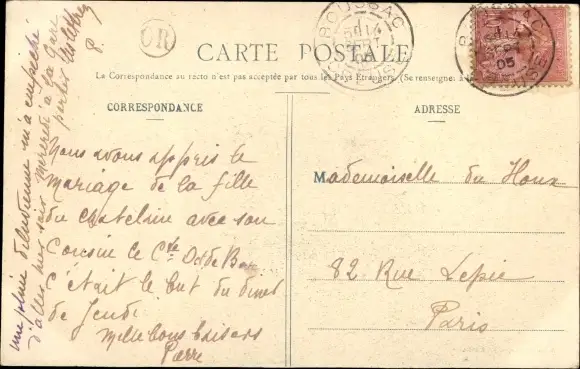 OR
ROUSSAC
CARTE POSTALE
La Correspondance au recto n'est pas acceptée par tous les Pays Étrangers. (Se renseigner à la
CORRESPONDANCE
ADRESSE
Nous avons appris le
mariage de la fille
du chatelin avec son
Cousin le Cte
c'était le but du diner
de Jeudi
Mille bons baisers
Pierre
une pluie diluvienne m'a empeché
d'aller hier soir à la gare
porter les lettres
P.
Mademoiselle du Houx
82 Rue Lepic
Paris